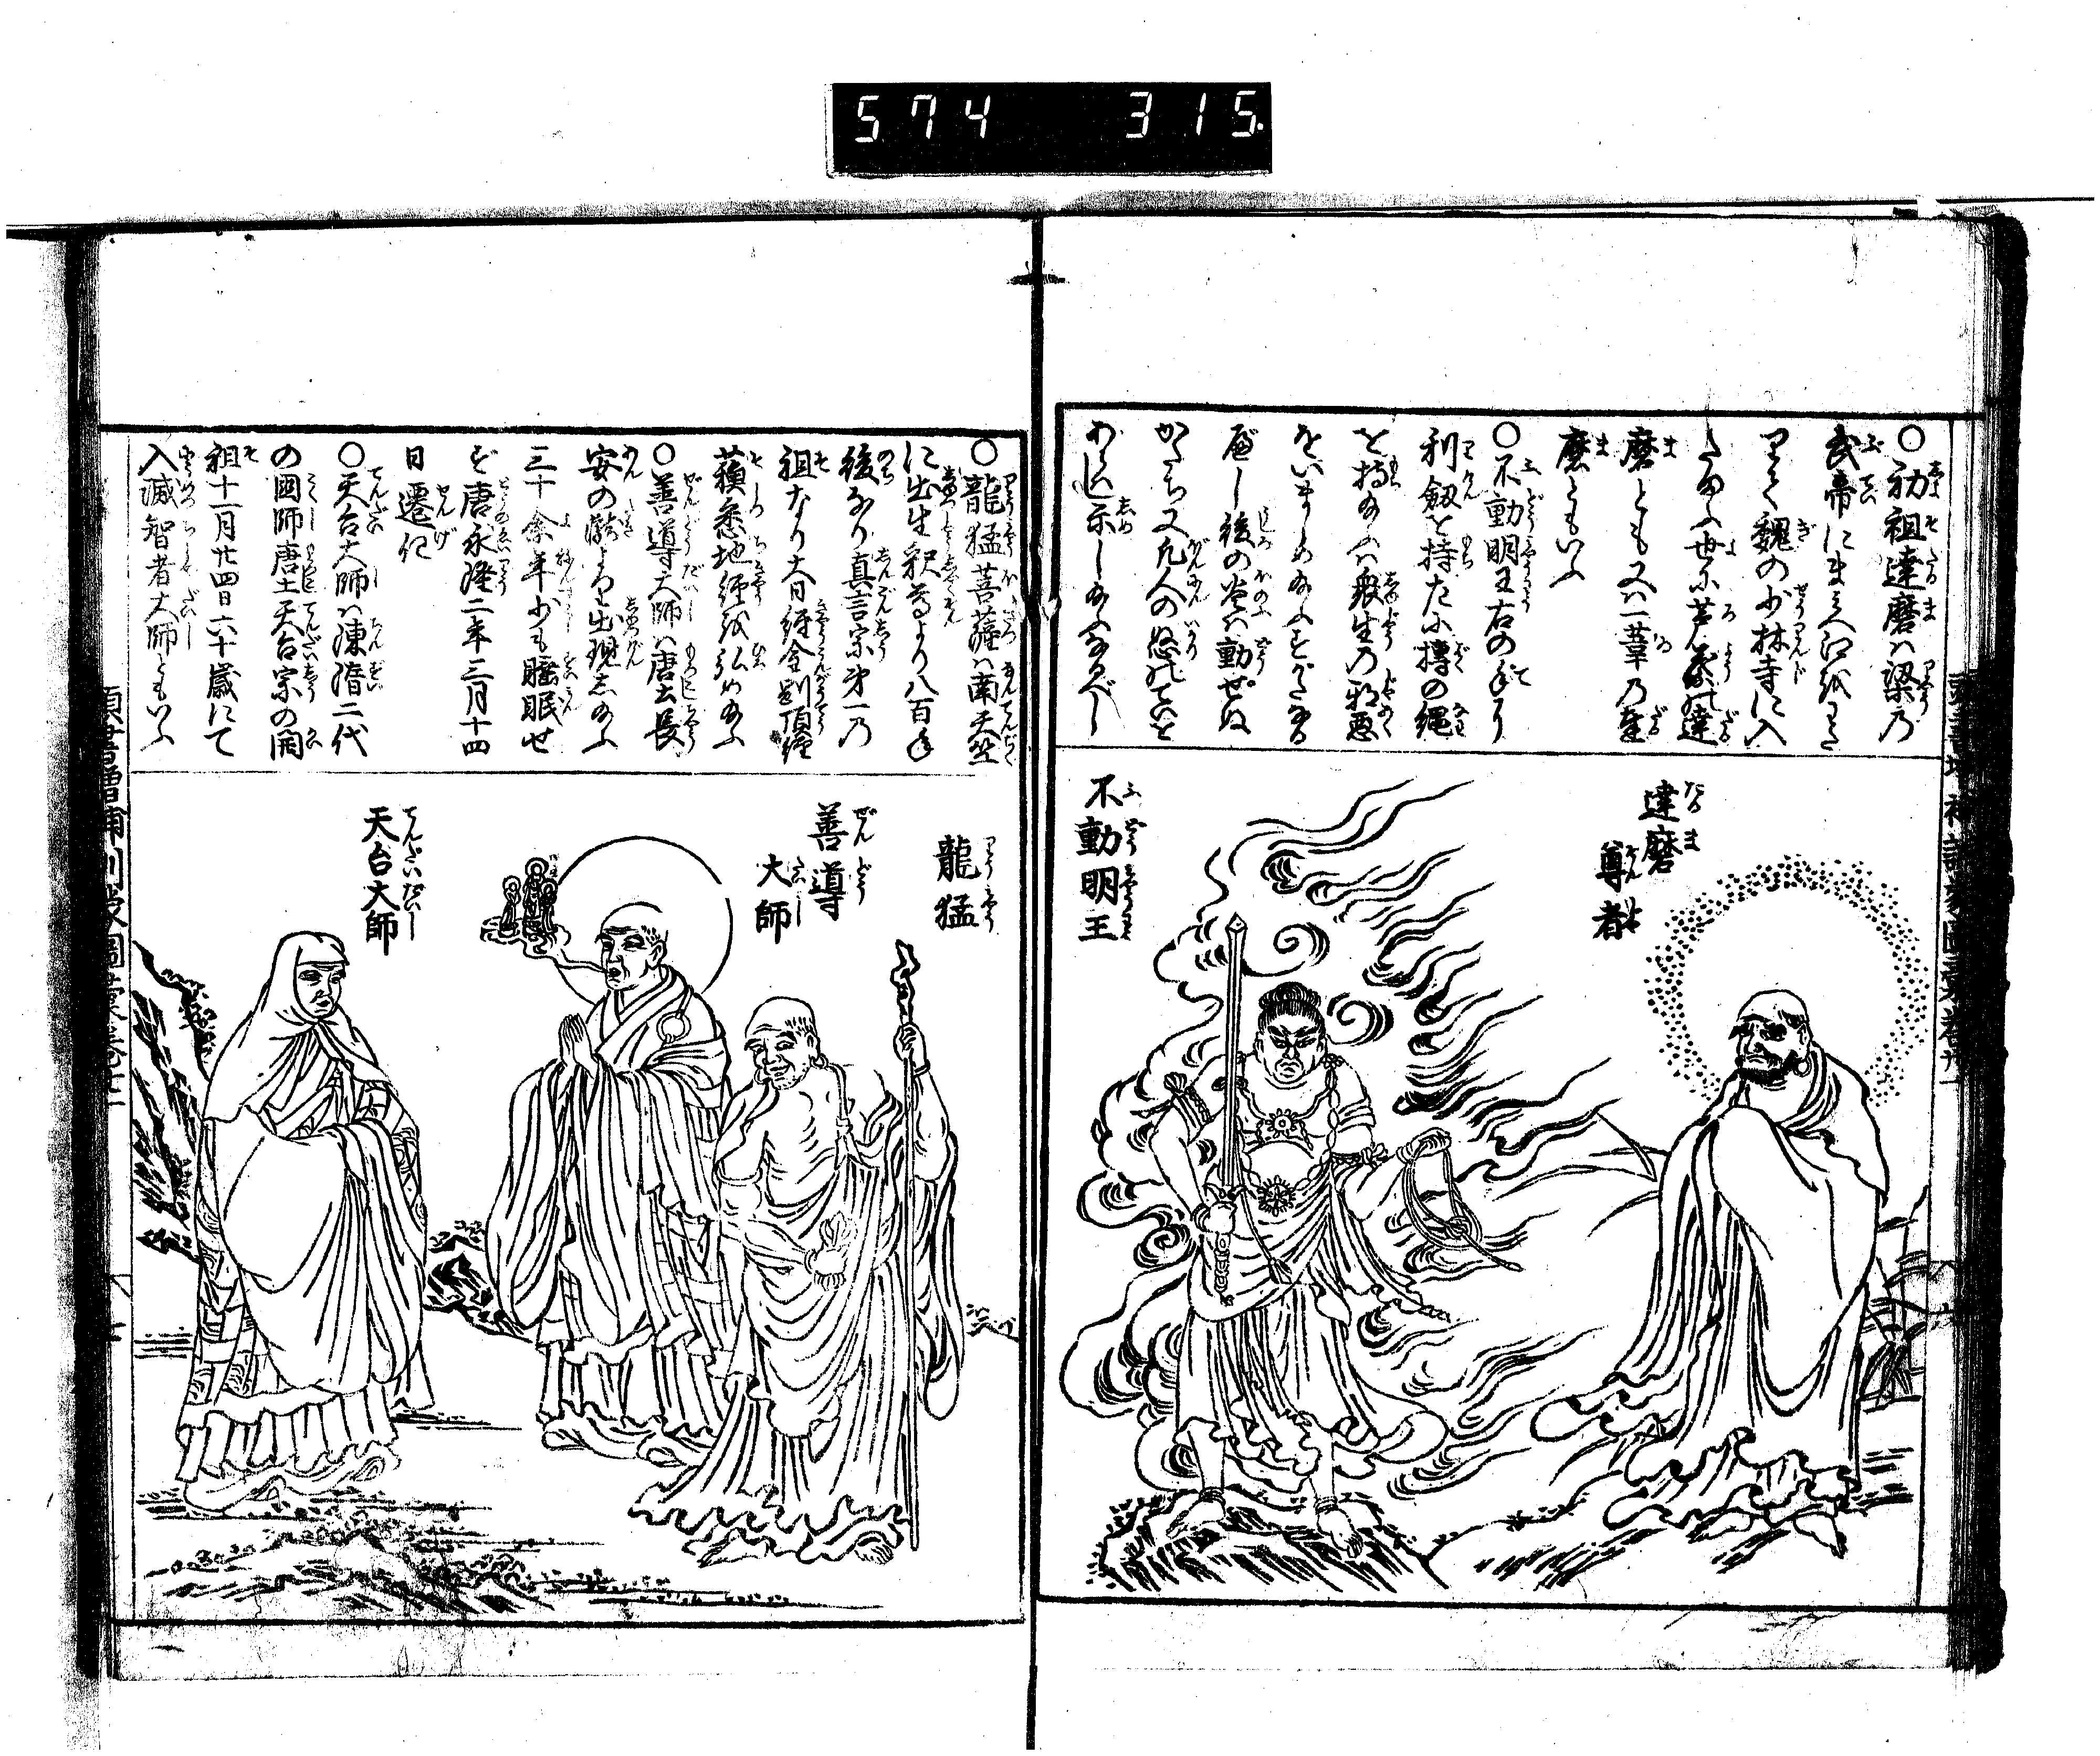 574 315.
○初祖達磨ハ梁乃
武帝にまみへ江を
魏の少林寺に入
たまふ世に芦葉の達
磨とも又ハ一葦乃達
磨ともいふ
○不動明王右の手に
利剱を持た小搏の縄
を持給ふハ衆生の邪悪
をいましめ給ふすがたなる
べし後の火ハ動ぜぬ
かたち又凡人の怒れるを
示し給ふなるべし
達磨
尊者
不動明王
○龍猛菩薩ハ南天竺
に出生釈尊より八百年
後なり真言宗第一乃
祖なり大日経金剛頂経
蘓悉地経を弘め給ふ
○善導大師ハ唐土長
安の滝より出現し給ふ
三十余年少も睡眠せ
ず唐永隆二年三月十四
日遷化
○天台大師ハ陳隋二代
の国師唐土天台宗の開
祖十一月廿四日六十歳にて
入滅智者大師ともいふ
龍猛
善導
大師
天台大師
頭書増補訓蒙圖彙巻廿一